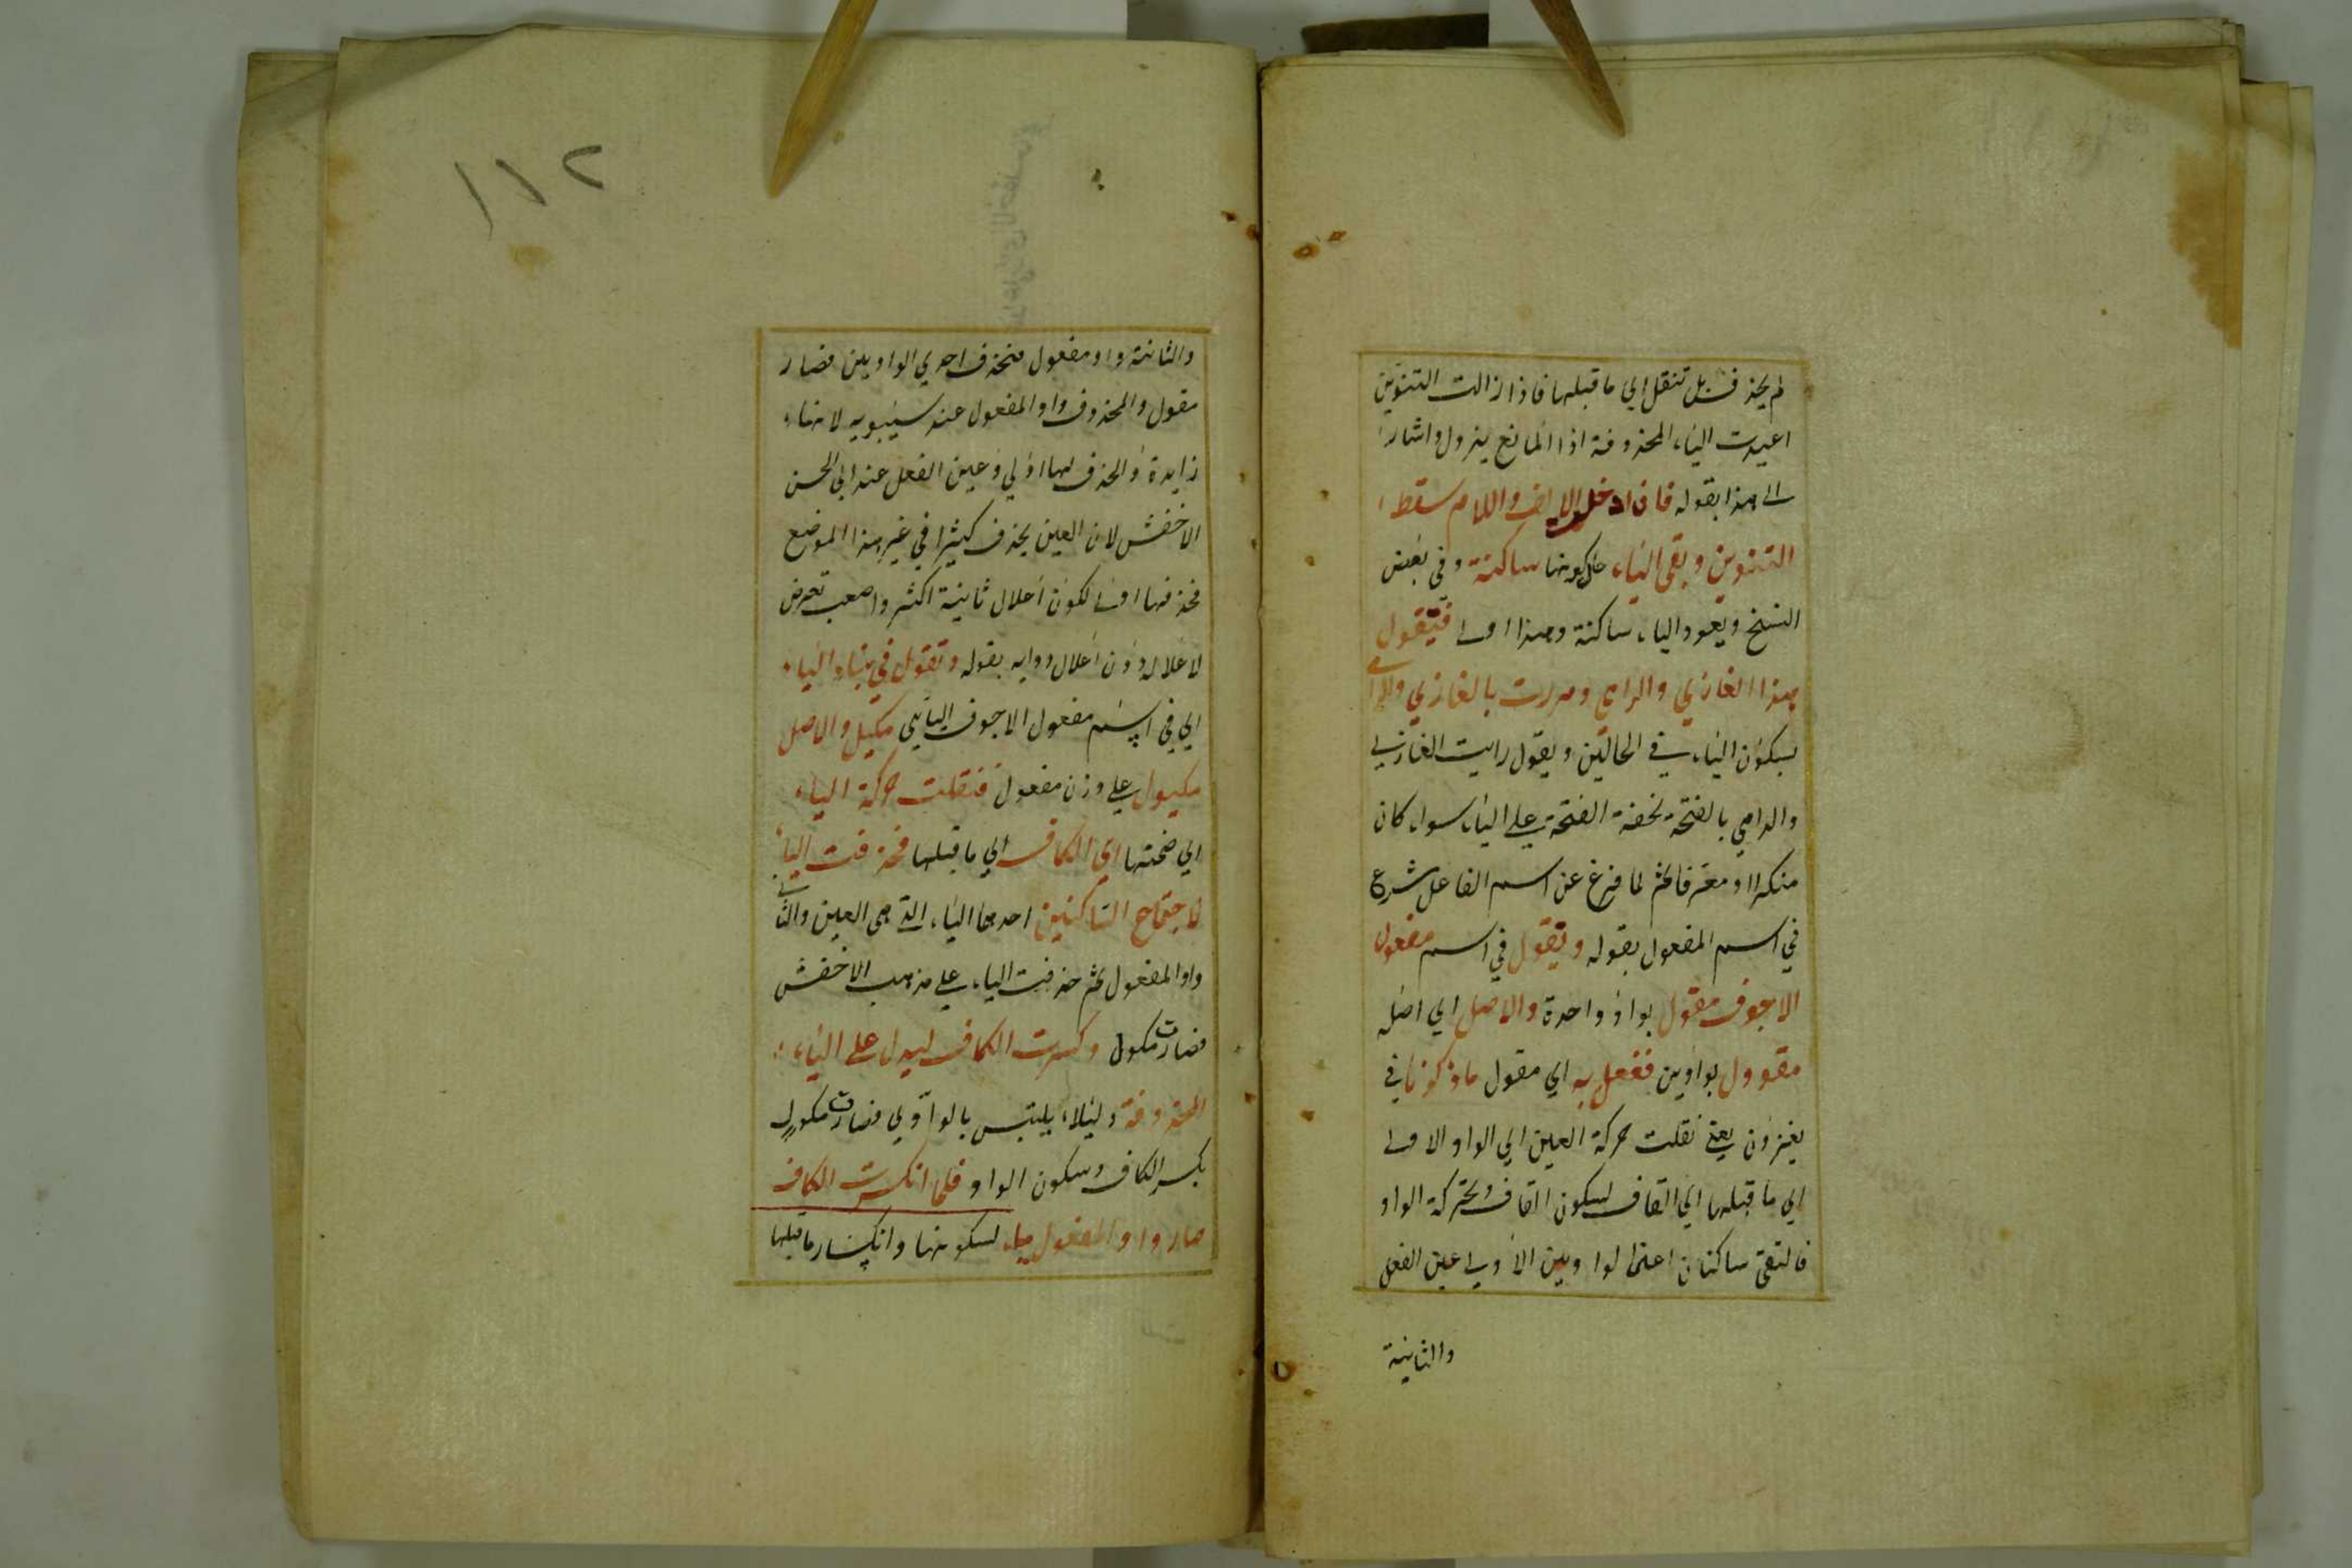 لم يحذف بل تنقل الي ما قبلها فاذا زالت التنوين
اعيدت الياء المحذوفة اذا المانع يزول واشار
الى هذا بقوله فان ادخل الالف واللام سقط
التنوين وبقى الياء حال كونها ساكنة وفي بعض
النسخ ويعود الياء ساكنة وهذا اولى فتقول
هذا الغازي والرامي ومررت بالغازي والرامي
بسكون الياء في الحالين ويقول رايت الغازي
والرامي بالفتحة لخفة الفتحة على الياء سواء كان
منكرا او معرفا ثم لما فرغ عن اسم الفاعل شرع
في اسم المفعول بقوله وتقول في اسم مفعول
الاجوف مقول بواو واحدة والاصل اي اصله
مقوول بواوين ففعل به اي مقول ما ذكرنا في
يغزون يعني نقلت حركة العين الي الواو الاولى
الي ما قبلها الي القاف لسكون القاف وتحركة الواو
فالتقى ساكنان اعني الواوين الاولى عين الفعل
والثانية
١١٢
والثانية واو مفعول فتحذف احدي الواوين فصار
مقول والمحذوف واو المفعول عند سيبويه لانها
زايدة والحذف لها اولي وعين الفعل عند ابي الحسن
الاخفش لان العين يحذف كثيرا في غير هذا الموضع
فحذفها اولى لكون اعلال ثانية اكثر واصعب تعرض
لاعلاله دون اعلال ووايه بقوله وتقول في بناء الياء
اي في اسم مفعول الاجوف اليائي مكيل والاصل
مكيول على وزن مفعول فنقلت حركة الياء
اي ضمتها اي الكاف الي ما قبلها فحذفت الياء
لاجتماع الساكنين احدهما الياء التي هي العين والثاني
واو المفعول ثم حذفت الياء على مذهب الاخفش
فصارت مكول وكسرت الكاف ليدل على الياء
المحذوفة وليلا يلتبس بالواوي فصارت مكول
بكسر الكاف وسكون الواو فلما انكسرت الكاف
صار واو المفعول ياء لسكونها وانكسار ما قبلها